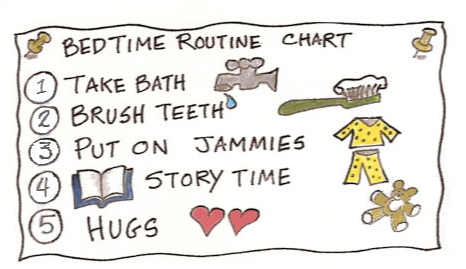 BEDTIME ROUTINE CHART
1 TAKE BATH
2 BRUSH TEETH
3 PUT ON JAMMIES
4 STORY TIME
5 HUGS